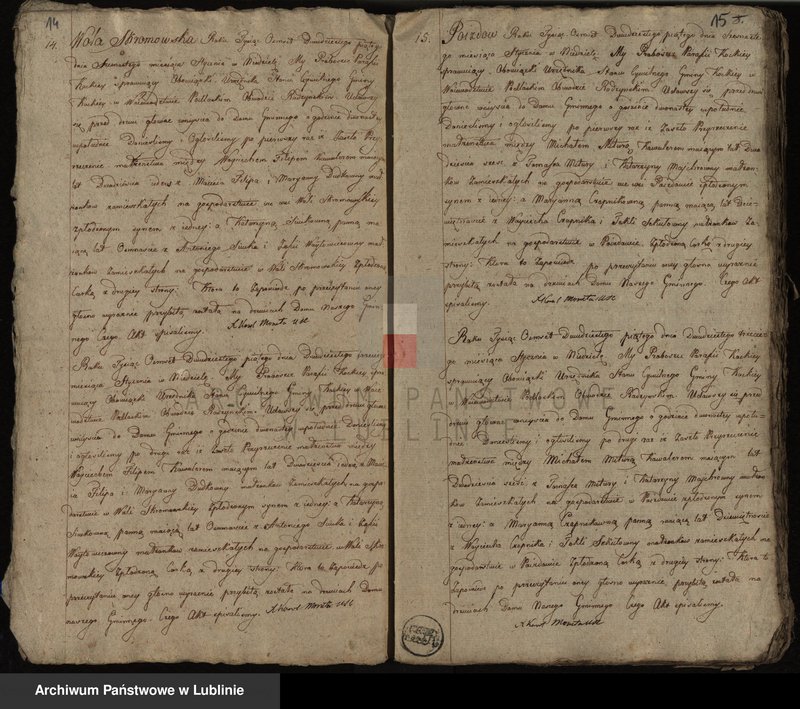 14
14. Wola Skromowska Roku Tysiąc Osmset Dwudziestego piątego
dnia Szesnastego miesiąca Stycznia w Niedzielę My Proboszcz Parafii
Kockiey sprawuiący Obowiązki Urzędnika Stanu Cywilnego Gminy
Kockiey w Woiewodztwie Podlaskim Obwodzie Radzynskim Udawszy
się przed drzwi głowne weyscia do Domu Gminnego o godzinie dwunastey
w południe Donieslismy i Ogłosilismy po pierwszy raz iż Zaszło Przy-
rzeczenie małzenstwa między Woyciechem Filipem Kawalerem maiącym
lat Dwadziescia ieden z Macieia Filipa i Maryanny Dudkowny mał-
żonkow zamieszkałych na gospodarstwie we wsi Woli Skromowskiey
Zpłodzonym synem z iedney: a Katarzyną Siwkowną panną ma-
iącą lat Osmnascie z Antoniego Siwka i Zofii Woytowiczowny mał-
żonkow Zamieszkałych na gospodarstwie w Woli Skromowskiey Zpłodzoną
Corką z drugiey strony: Ktora to Zapowiedz po przeczytaniu oney
głosno wyraznie przybitą została na drzwiach Domu Naszego Gmin-
nego Czego Akt spisalismy.
X Karol Moritz USC
Roku Tysiąc Osmset Dwudziestego piątego dnia Dwudziestego trzeciego
miesiąca Stycznia w Niedzielę My Proboszcz Parafii Kockiey spra-
wuiący Obowiązki Urzędnika Stanu Cywilnego Gminy Kockiey w Woie-
wodztwie Podlaskim Obwodzie Radzynskim Udawszy się przed drzwi głowne
weyscia do Domu Gminnego o godzinie dwunastey w południe Donieslismy
i ogłosilismy po drugi raz iż Zaszło Przyrzeczenie małzenstwa między
Woyciechem Filipem Kawalerem maiącym lat Dwadziescia ieden z Macie-
ia Filipa i Maryanny Dudkowny małżonkow Zamieszkałych na gospo-
darstwie w Woli Skromowskiey Zpłodzonym synem z iedney: a Katarzyną
Siwkowną panną maiącą lat Osmnascie z Antoniego Siwka i Zofii
Woytowiczowny małżonkow zamieszkałych na gospodarstwie w Woli Skro-
mowskiey Zpłodzoną Corką z drugiey strony: Ktora to Zapowiedz po
przeczytaniu oney głosno wyraznie przybitą została na drzwiach Domu
naszego Gminnego. Czego Akt spisalismy. X Karol Moritz USC
15
15. Poizdow Roku Tysiąc Osmset Dwudziestego piątego dnia Szesnaste-
go miesiąca Stycznia w Niedzielę My Proboszcz Parafii Kockiey
sprawuiący Obowiązki Urzędnika Stanu Cywilnego Gminy Kockiey w
Woiewodztwie Podlaskim Obwodzie Radzynskim Udawszy się przed drzwi
głowne weyscia do Domu Gminnego o godzinie dwunastey w południe
Donieslismy i ogłosilismy po pierwszy raz iż Zaszło Przyrzeczenie
małzenstwa między Michałem Miturą Kawalerem maiącym lat Dwa-
dziescia szesc z Tomasza Mitury i Katarzyny Maychrowny małżon-
kow Zamieszkałych na gospodarstwie we wsi Poizdowie Zpłodzonym
synem z iedney: a Maryanną Czapnikowną panną maiącą lat Dzie-
więtnascie z Woyciecha Czapnika i Tekli Sekutowny małżonkow Za-
mieszkałych na gospodarstwie w Poizdowie Zpłodzoną Corką z drugiey
strony: Ktora to Zapowiedz po przeczytaniu oney głosno wyraznie
przybitą została na drzwiach Domu Naszego Gminnego. Czego Akt
spisalismy.
X Karol Moritz USC
Roku Tysiąc Osmset Dwudziestego piątego dnia Dwudziestego trzecie-
go miesiąca Stycznia w Niedzielę My Proboszcz Parafii Kockiey
sprawuiący Obowiązki Urzędnika Stanu Cywilnego Gminy Kockiey
w Woiewodztwie Podlaskim Obwodzie Radzynskim Udawszy się przed
drzwi głowne weyscia do Domu Gminnego o godzinie dwunastey w połu-
dnie Donieslismy i ogłosilismy po drugi raz iż Zaszło Przyrzeczenie
małzenstwa między Michałem Miturą Kawalerem maiącym lat
Dwadziescia szesc z Tomasza Mitury i Katarzyny Maychrowny małżon-
kow Zamieszkałych na gospodarstwie w Poizdowie zpłodzonym synem
z iedney: a Maryanną Czapnikowną panną maiącą lat Dziewiętnascie
z Woyciecha Czapnika i Tekli Sekutowny małżonkow zamieszkałych na
gospodarstwie w Poizdowie Zpłodzoną Corką z drugiey strony: Ktora to
Zapowiedz po przeczytaniu oney głosno wyraznie, przybitą została na
drzwiach Domu Naszego Gminnego Czego Akt spisalismy.
X Karol Moritz USC
Archiwum Państwowe w Lublinie